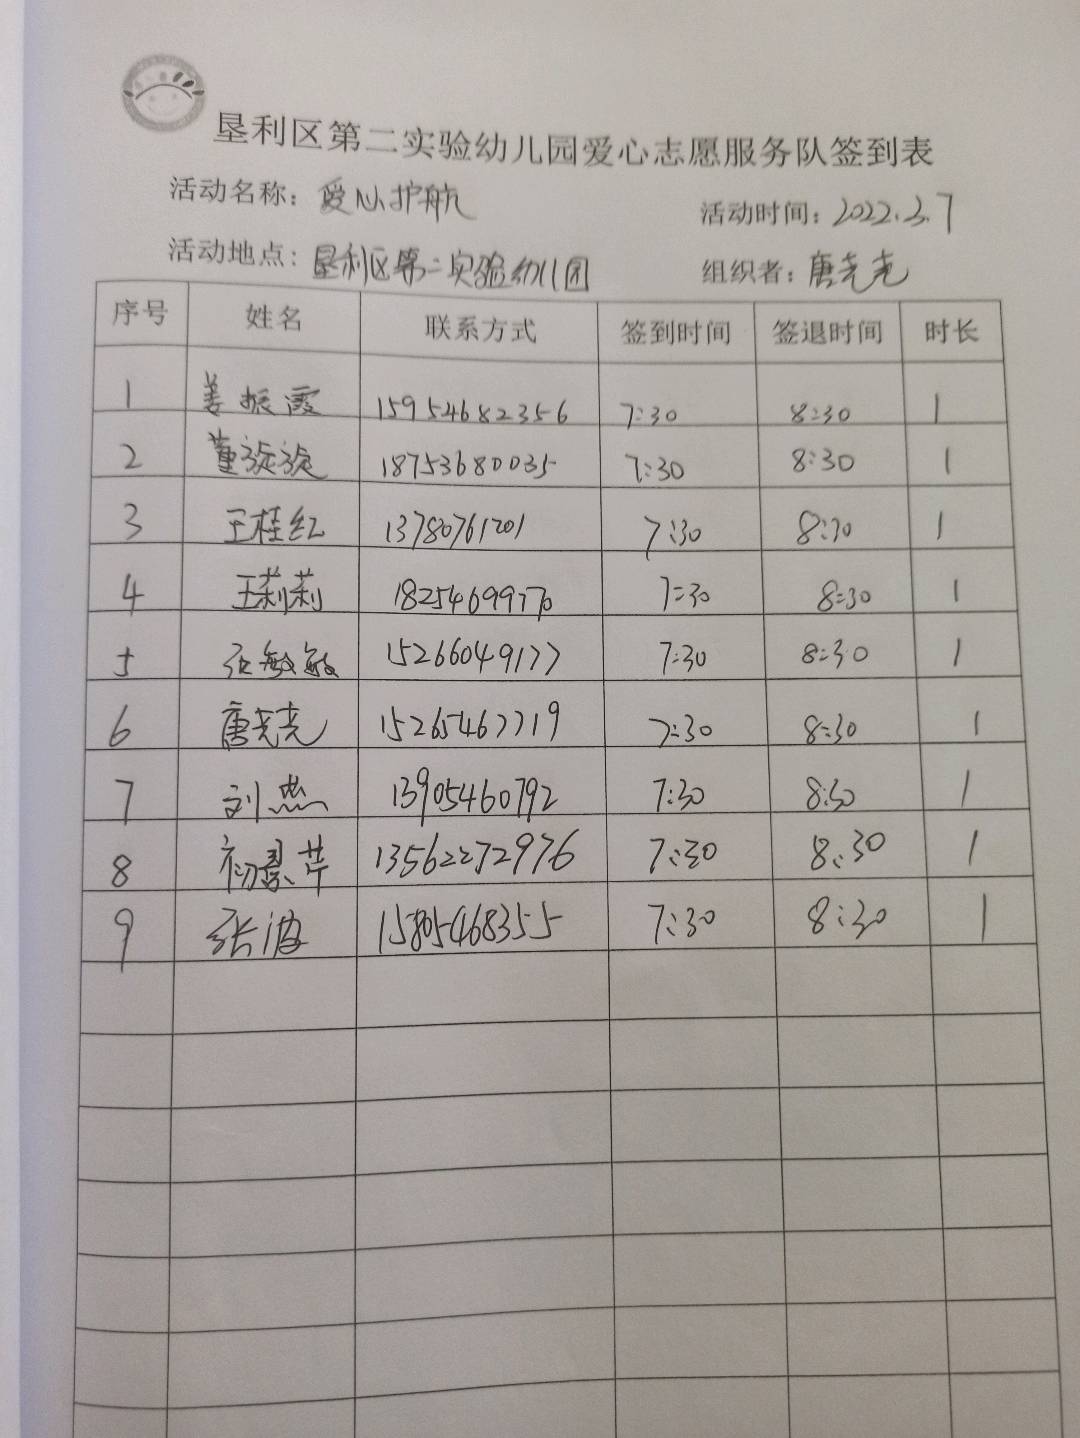 垦利区第二实验幼儿园爱心志愿服务队签到表
活动名称：爱心护航 活动时间：2022.3.7
活动地点：垦利区第二实验幼儿园 组织者：唐尧尧
序号 姓名 联系方式 签到时间 签退时间 时长
1 姜振霞 15954682356 7:30 8:30 1
2 董旋旋 18753680035 7:30 8:30 1
3 王桂红 13780761201 7:30 8:30 1
4 王莉莉 18254699770 7:30 8:30 1
5 张敏敏 15266049177 7:30 8:30 1
6 唐尧尧 15265467719 7:30 8:30 1
7 刘燕 13905460792 7:30 8:30 1
8 初景芹 13562272976 7:30 8:30 1
9 张波 15805468355 7:30 8:30 1